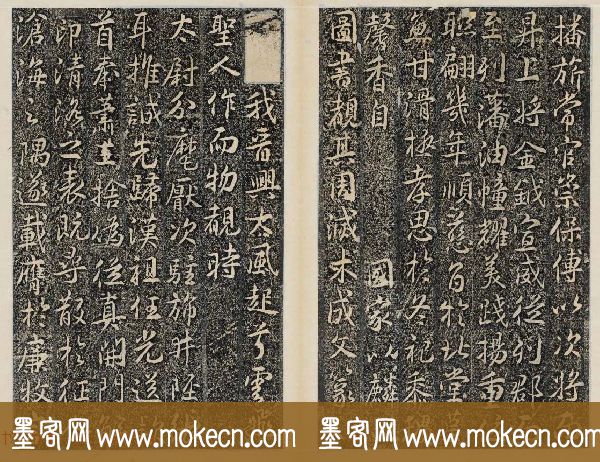 播旂常官崇保傅以次將
昇上將金鉞宣威從列郡
至列藩油幢耀美踐揚重
聯翩幾年順慈旨於北堂
甘滑極孝思於冬祀
馨香自 國家以麟
圖書覩其因滅未成文
我晉興大風起兮雲飛
聖人作而物覩時
太尉分麾厭次駐旆井陘
耳推誠先歸漢祖任光送
首秦蕭王捨偽從真開門
印清洛之表既孚散於征
滄海之隅遂載膺於廉牧
墨客网 www.mokecn.com 墨客网 www.mokecn.com